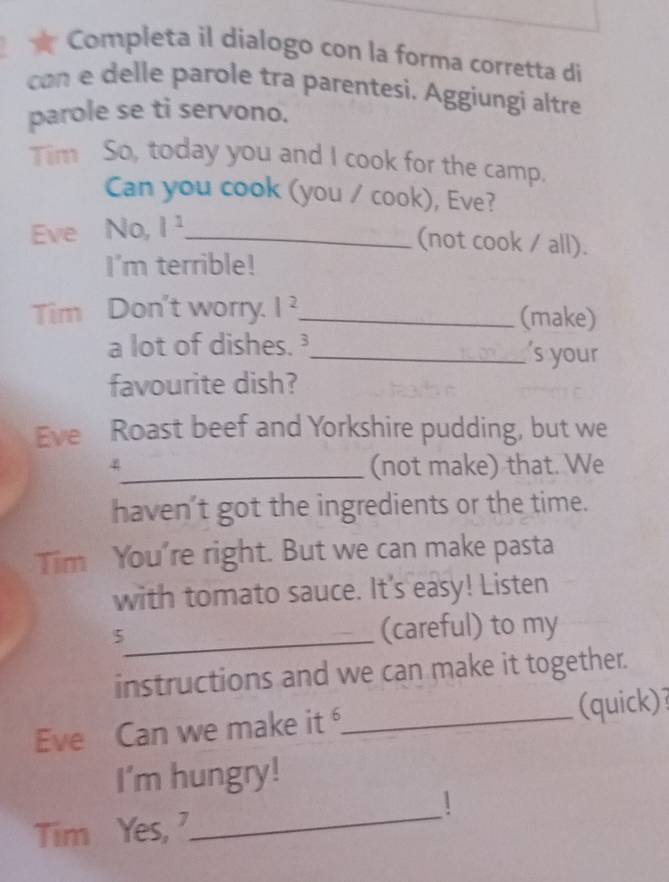 Completa il dialogo con la forma corretta di
can e delle parole tra parentesi. Aggiungi altre
parole se ti servono.
Tim So, today you and I cook for the camp.
Can you cook (you / cook), Eve?
Eve No, I ¹____________ (not cook / all).
I'm terrible!
Tim Don't worry. I ²____________ (make)
a lot of dishes. ³____________'s your
favourite dish?
Eve Roast beef and Yorkshire pudding, but we
⁴____________ (not make) that. We
haven't got the ingredients or the time.
Tim You're right. But we can make pasta
with tomato sauce. It's easy! Listen
⁵____________ (careful) to my
instructions and we can make it together.
Eve Can we make it ⁶____________ (quick)?
I'm hungry!
Tim Yes, ⁷____________!